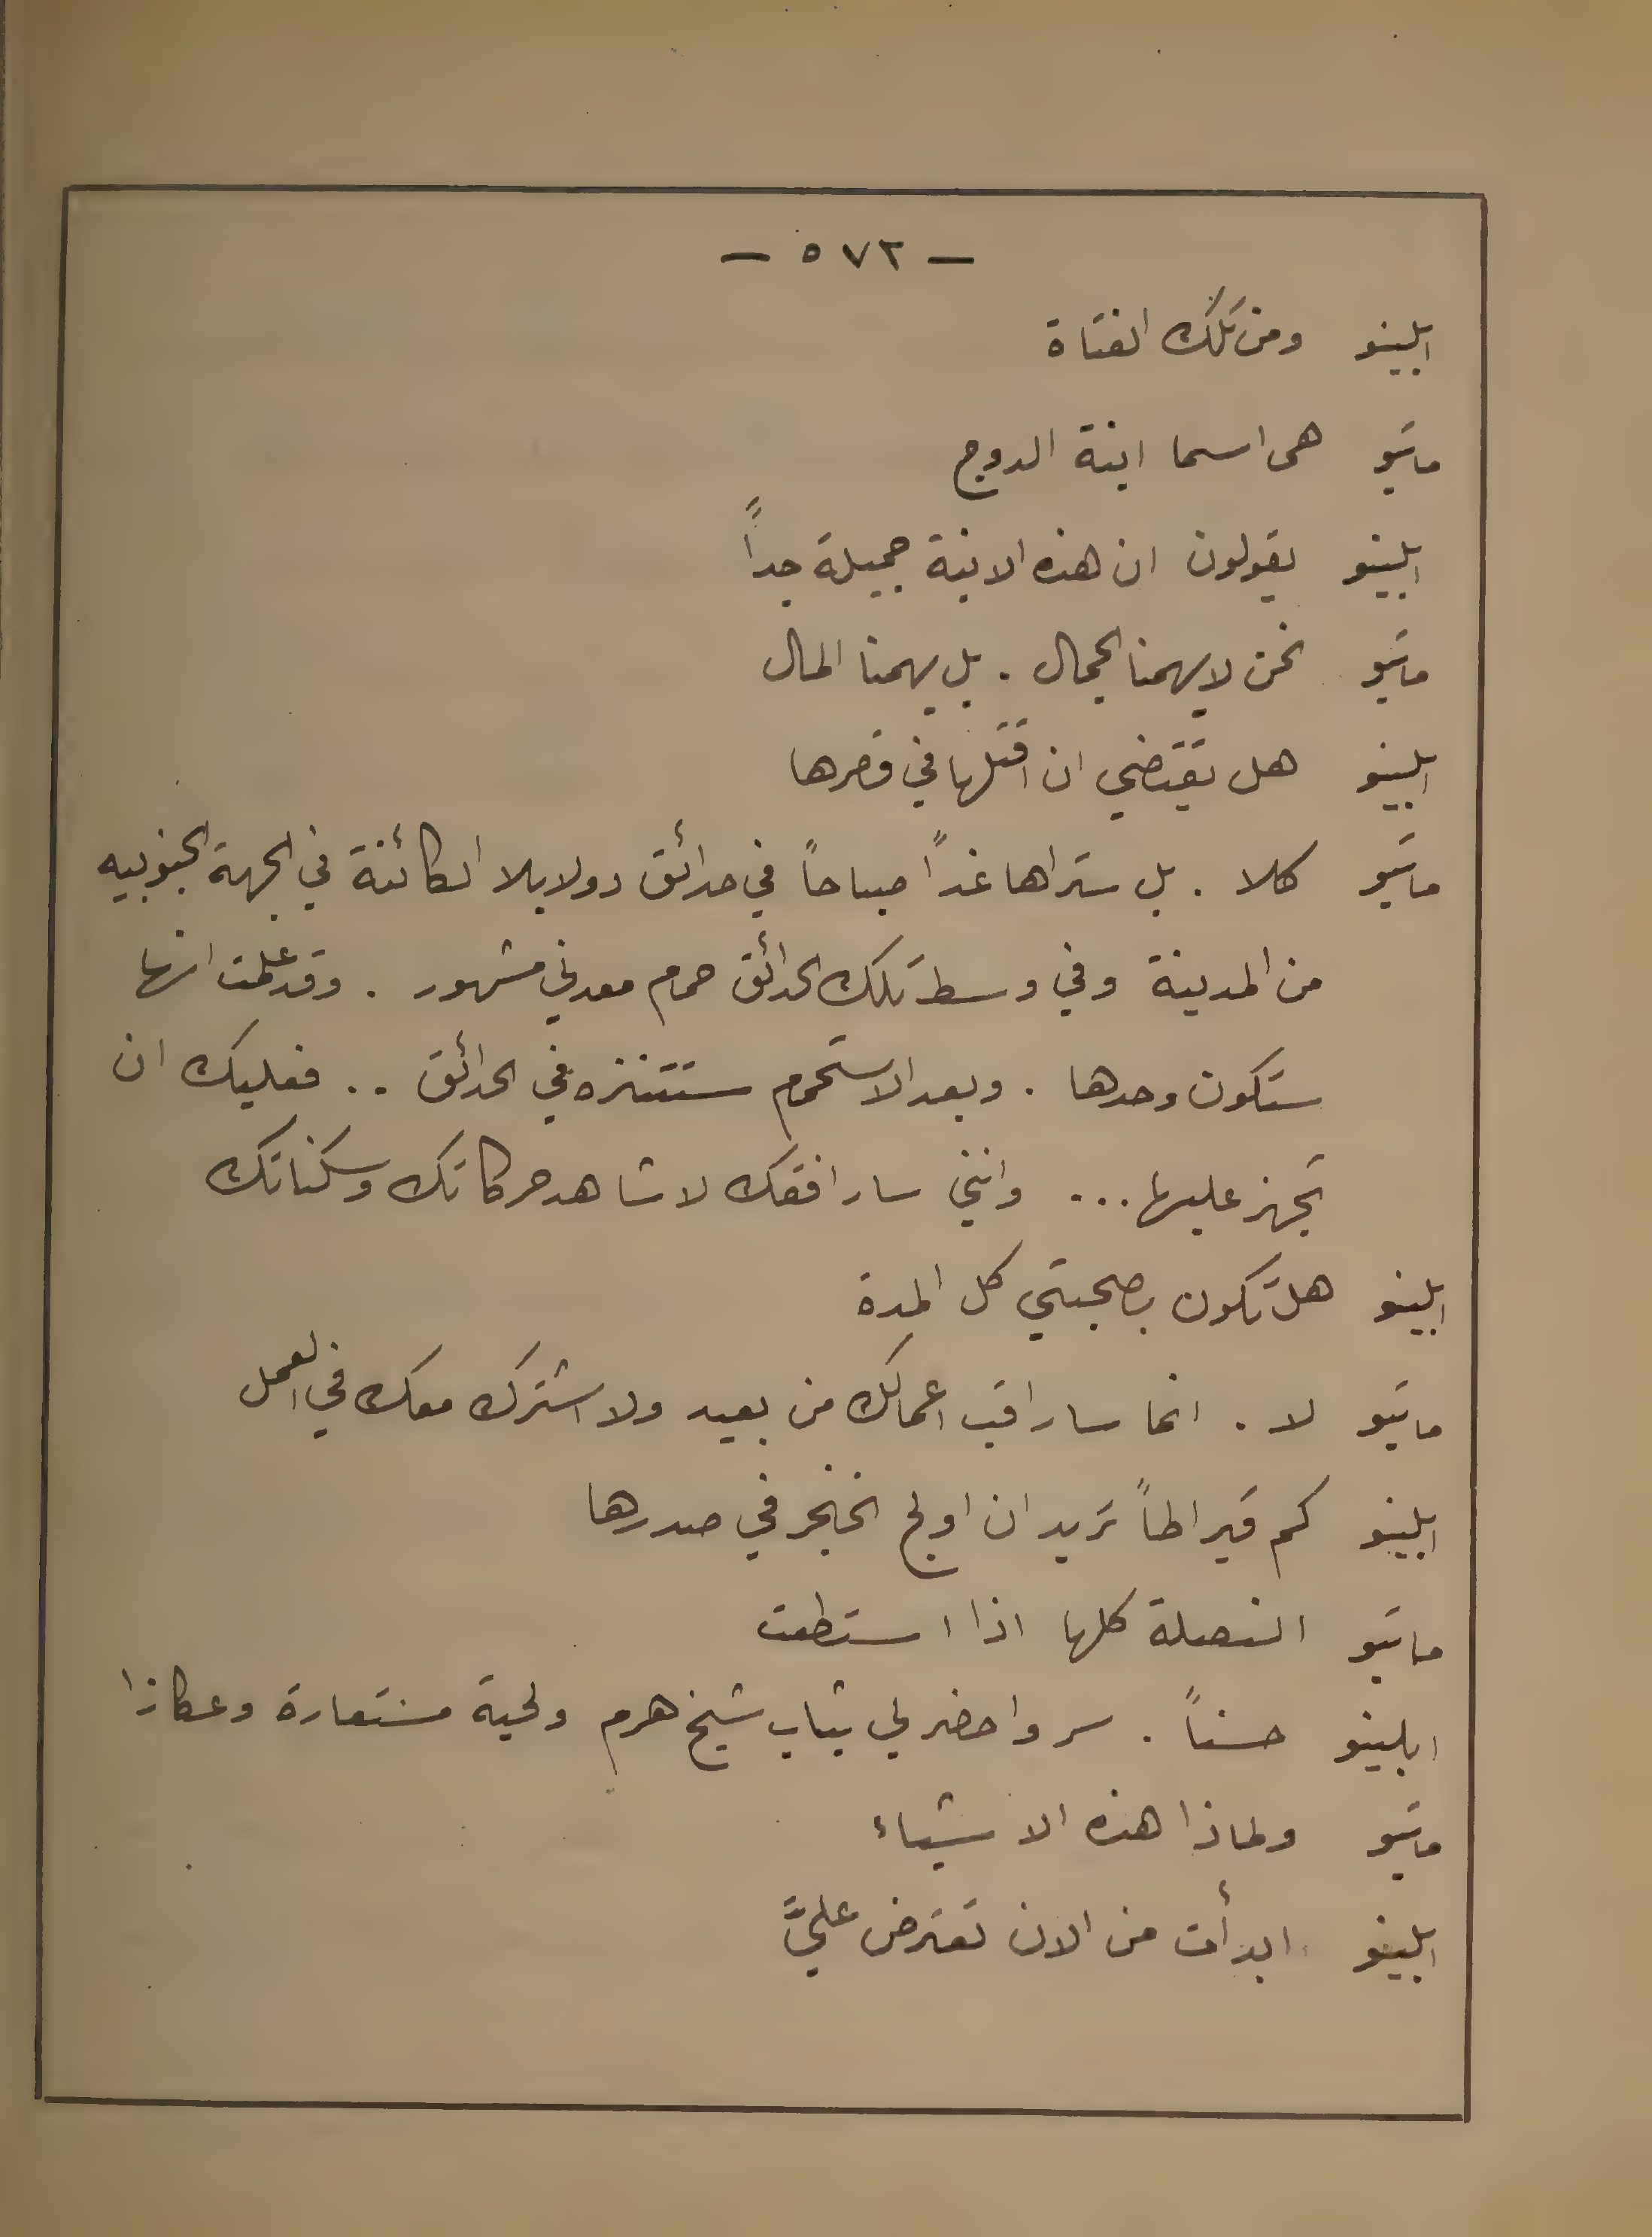 — ٥٧٢ —
ابلينو ومن تلك الفتاة
ماتيو هى اسما ابنة الدوج
ابلينو يقولون ان هذه الابنة جميلة جداً
ماتيو نحن لا يهمنا الجمال . بل يهمنا المال
ابلينو هل يقتضي ان اقتلها في قصرها
ماتيو كلا . بل ستراها غداً صباحاً في حدائق دولابلا الكائنة في الجهة الجنوبيه
من المدينة وفي وسط تلك الحدائق حمام معدني مشهور . وقد علمت انها
ستكون وحدها . وبعد الاستحمام ستتنزه في الحدائق .. فعليك ان
تجهز عليها ... وانني سارافقك لاشاهد حركاتك وسكناتك
ابلينو هل تكون بصحبتي كل المدة
ماتيو لا . انما ساراقب اعمالك من بعيد ولا اشترك معك في العمل
ابلينو كم قيراطاً تريد ان اولج الخنجر في صدرها
ماتيو النصلة كلها اذا استطعت
ابلينو حسناً . سر واحضر لي ثياب شيخ هرم ولحية مستعارة وعكازا
ماتيو ولماذا هذه الاشياء
ابلينو ابدأت من الان تعترض عليَّ